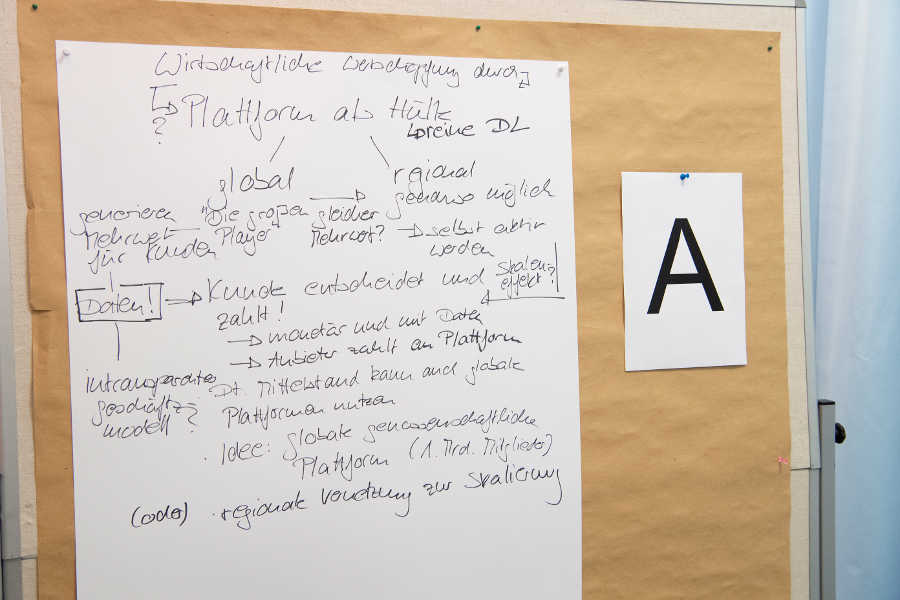 Wirtschaftliche Wertschöpfung durch
? Plattform als Hülle
reine DL
global
regional
generieren Mehrwert für Kunden
"Die großen Player"
gleicher Mehrwert?
genauso möglich
selbst aktiv werden
Daten!
Kunde entscheidet und zahlt!
Skalen-
effekt?
monetär und mit Daten
Anbieter zahlt an Plattform
intransparentes
Geschäfts-
modell?
Dt. Mittelstand kann auch globale
Plattformen nutzen
. Idee: globale genossenschaftliche
Plattform (1. Mrd. Mitglieder)
(oder) . regionale Vernetzung zur Skalierung
A